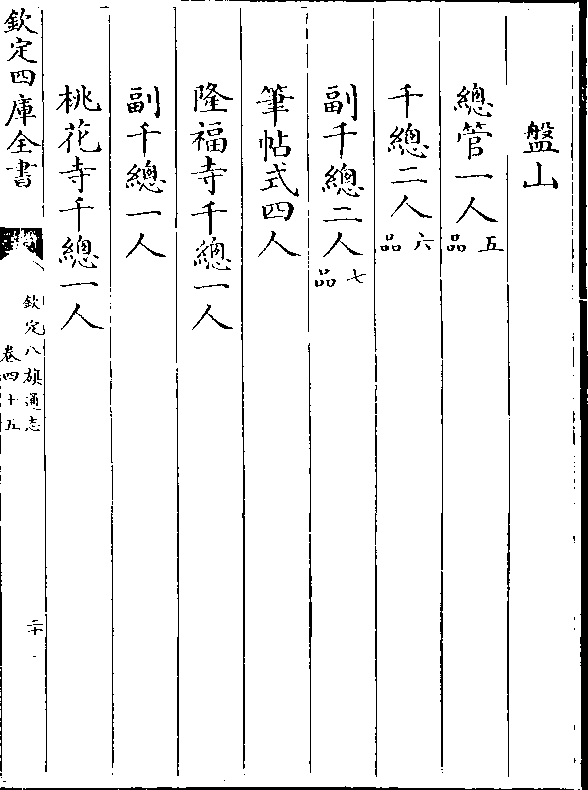 盤山
總管一人五品
千總二人六品
副千總二人七品
筆帖式四人
隆福寺千總一人
副千總一人
桃花寺千總一人
欽定四庫全書
欽定八旗通志
卷四十五
二十